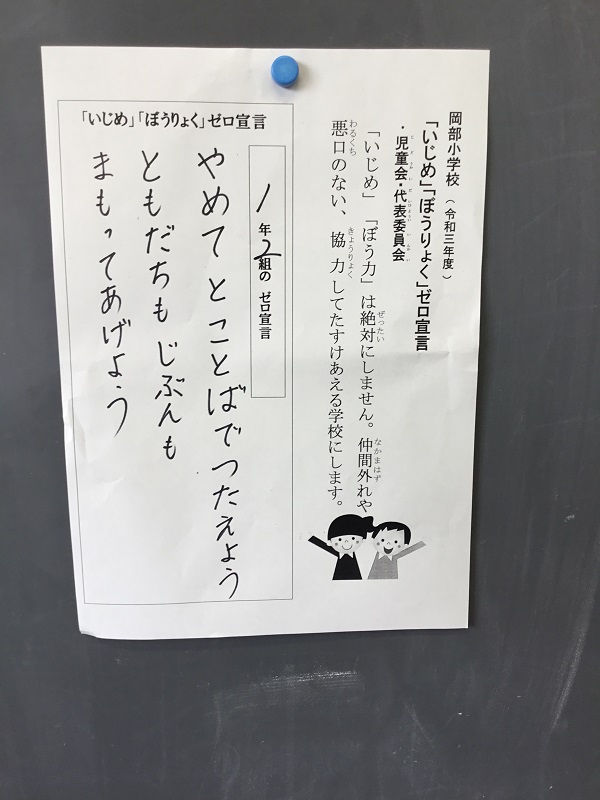 岡部小学校（令和三年度）
「いじめ」「ぼうりょく」ゼロ宣言
・児童会・代表委員会
「いじめ」「ぼう力」は絶対にしません。仲間外れや
悪口のない、協力してたすけあえる学校にします。
「いじめ」「ぼうりょく」ゼロ宣言
1年2組の ゼロ宣言
やめてとことばでつたえよう
ともだちもじぶんも
まもってあげよう